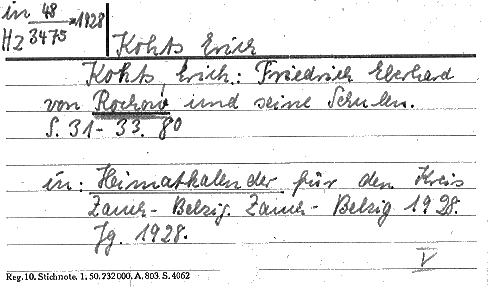 in 48 * 1928
Hz 3475
Kohts Erich
Kohts, Erich: Friedrich Eberhard
von Rochow und seine Schulen.
S. 31 - 33. 8o
in: Heimatkalender für den Kreis
Zauch - Belzig. Zauch - Belzig 1928.
Jg. 1928.
V
Reg. 10. Stichnote. 1. 50. 232 000. A. 803. S. 4062